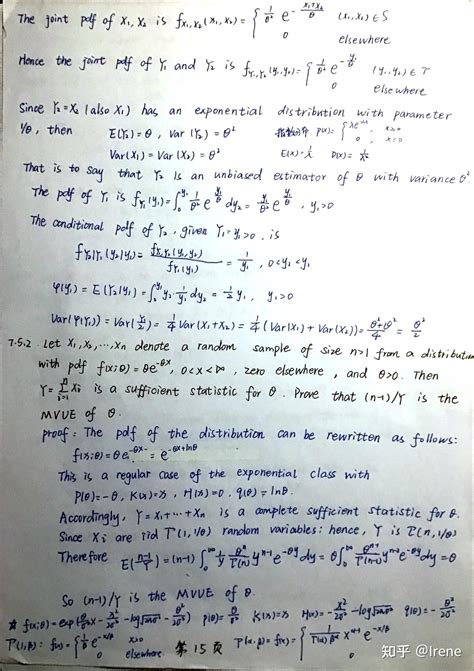 The joint pdf of X₁, X₂ is f_{X₁,X₂}(x₁,x₂) = { 1/θ² e^{-(x₁+x₂)/θ} (x₁,x₂) ∈ S
0 elsewhere
Hence the joint pdf of Y₁ and Y₂ is f_{Y₁,Y₂}(y₁,y₂) = { 1/θ² e^{-y₁/θ} (y₁,y₂) ∈ T
0 elsewhere
Since Y₂=X₂ (also X₁) has an exponential distribution with parameter
1/θ, then E(Y₂)=θ, Var(Y₂)=θ² 指数分布 p(x)={ λe^{-λx}, x≥0
0, x<0
Var(X₁) = Var(X₂) = θ² E(x)=1/λ D(x)=1/λ²
That is to say that Y₂ is an unbiased estimator of θ with variance θ².
The pdf of Y₁ is f_{Y₁}(y₁)=∫₀^{y₁} 1/θ² e^{-y₁/θ} dy₂ = y₁/θ² e^{-y₁/θ}, y₁>0
The conditional pdf of Y₂, given Y₁=y₁>0, is
f_{Y₂|Y₁}(y₂|y₁) = f_{Y₁,Y₂}(y₁,y₂)/f_{Y₁}(y₁) = 1/y₁, 0<y₂<y₁
φ(y₁) = E(Y₂|y₁) = ∫₀^{y₁} y₂·1/y₁ dy₂ = 1/2 y₁, y₁>0
Var(φ(Y₁)) = Var(Y₁/2) = 1/4 Var(X₁+X₂) = 1/4 (Var(X₁)+Var(X₂)) = (θ²+θ²)/4 = θ²/2
7.5.2. Let X₁, X₂, ..., Xn denote a random sample of size n>1 from a distribution
with pdf f(x;θ) = θe^{-θx}, 0<x<∞, zero elsewhere, and θ>0. Then
Y=∑_{i=1}^{n} Xi is a sufficient statistic for θ. Prove that (n-1)/Y is the
MVUE of θ.
proof: The pdf of the distribution can be rewritten as follows:
f(x;θ) = θe^{-θx} = e^{-θx+lnθ}
This is a regular case of the exponential class with
P(θ)=-θ, K(x)=x, H(x)=0, q(θ)=lnθ.
Accordingly, Y=X₁+···+Xn is a complete sufficient statistic for θ.
Since Xi are iid Γ(1,1/θ) random variables: hence, Y is Γ(n,1/θ)
Therefore E((n-1)/Y) = (n-1)∫₀^∞ 1/y θⁿ/Γ(n) y^{n-1} e^{-θy} dy = θ
So (n-1)/Y is the MVUE of θ.
第 15 页
知乎 @Irene